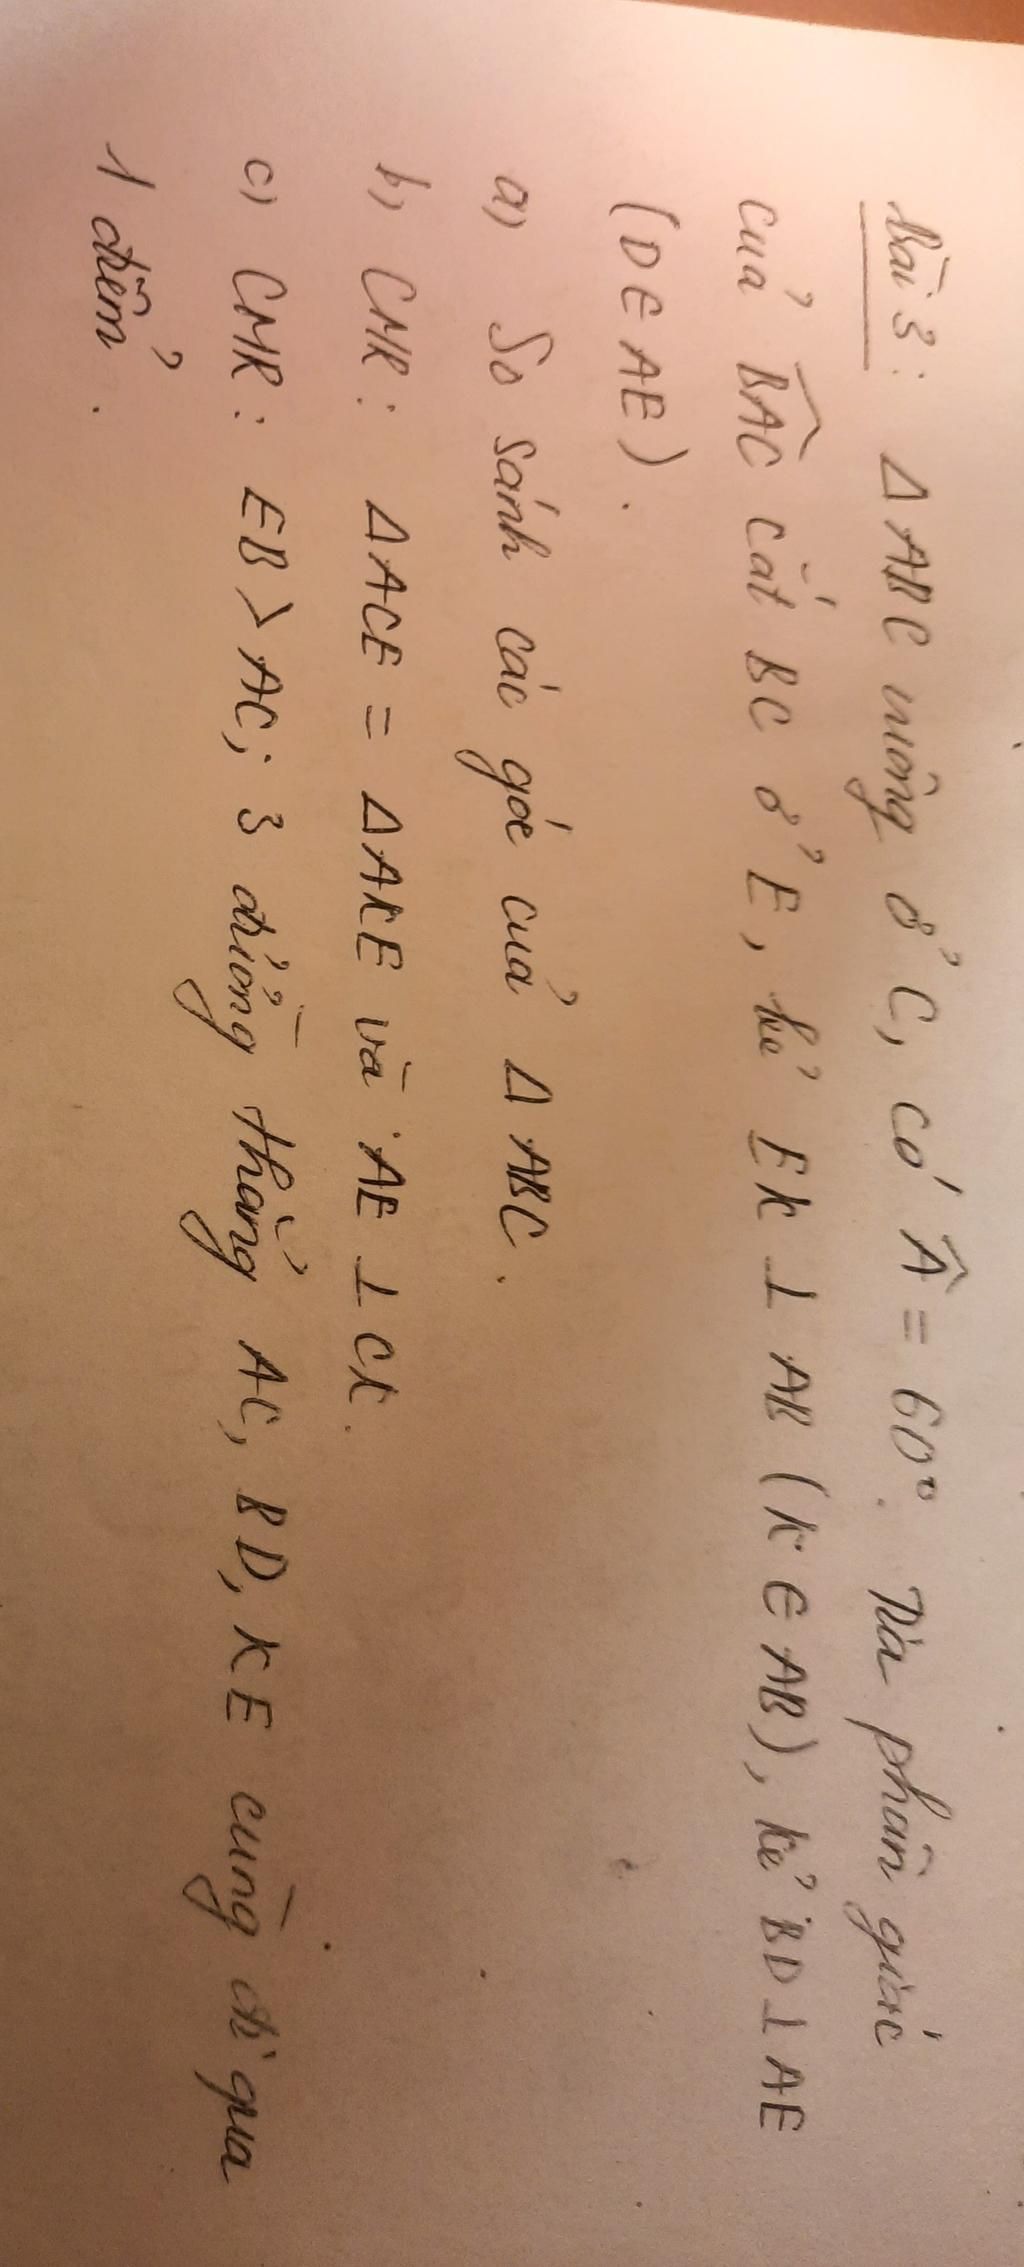 Bài 3: Δ ABC vuông ở C, có Â = 60°. Tia phân giác
của B̂AC cắt BC ở E, kẻ EK ⊥ AB (K ∈ AB), kẻ BD ⊥ AE
(D ∈ AE).
a) So sánh các góc của Δ ABC.
b) CMR: Δ ACE = Δ AKE và AE ⊥ CK.
c) CMR: EB > AC; 3 đường thẳng AC, BD, KE cùng đi qua
1 điểm.